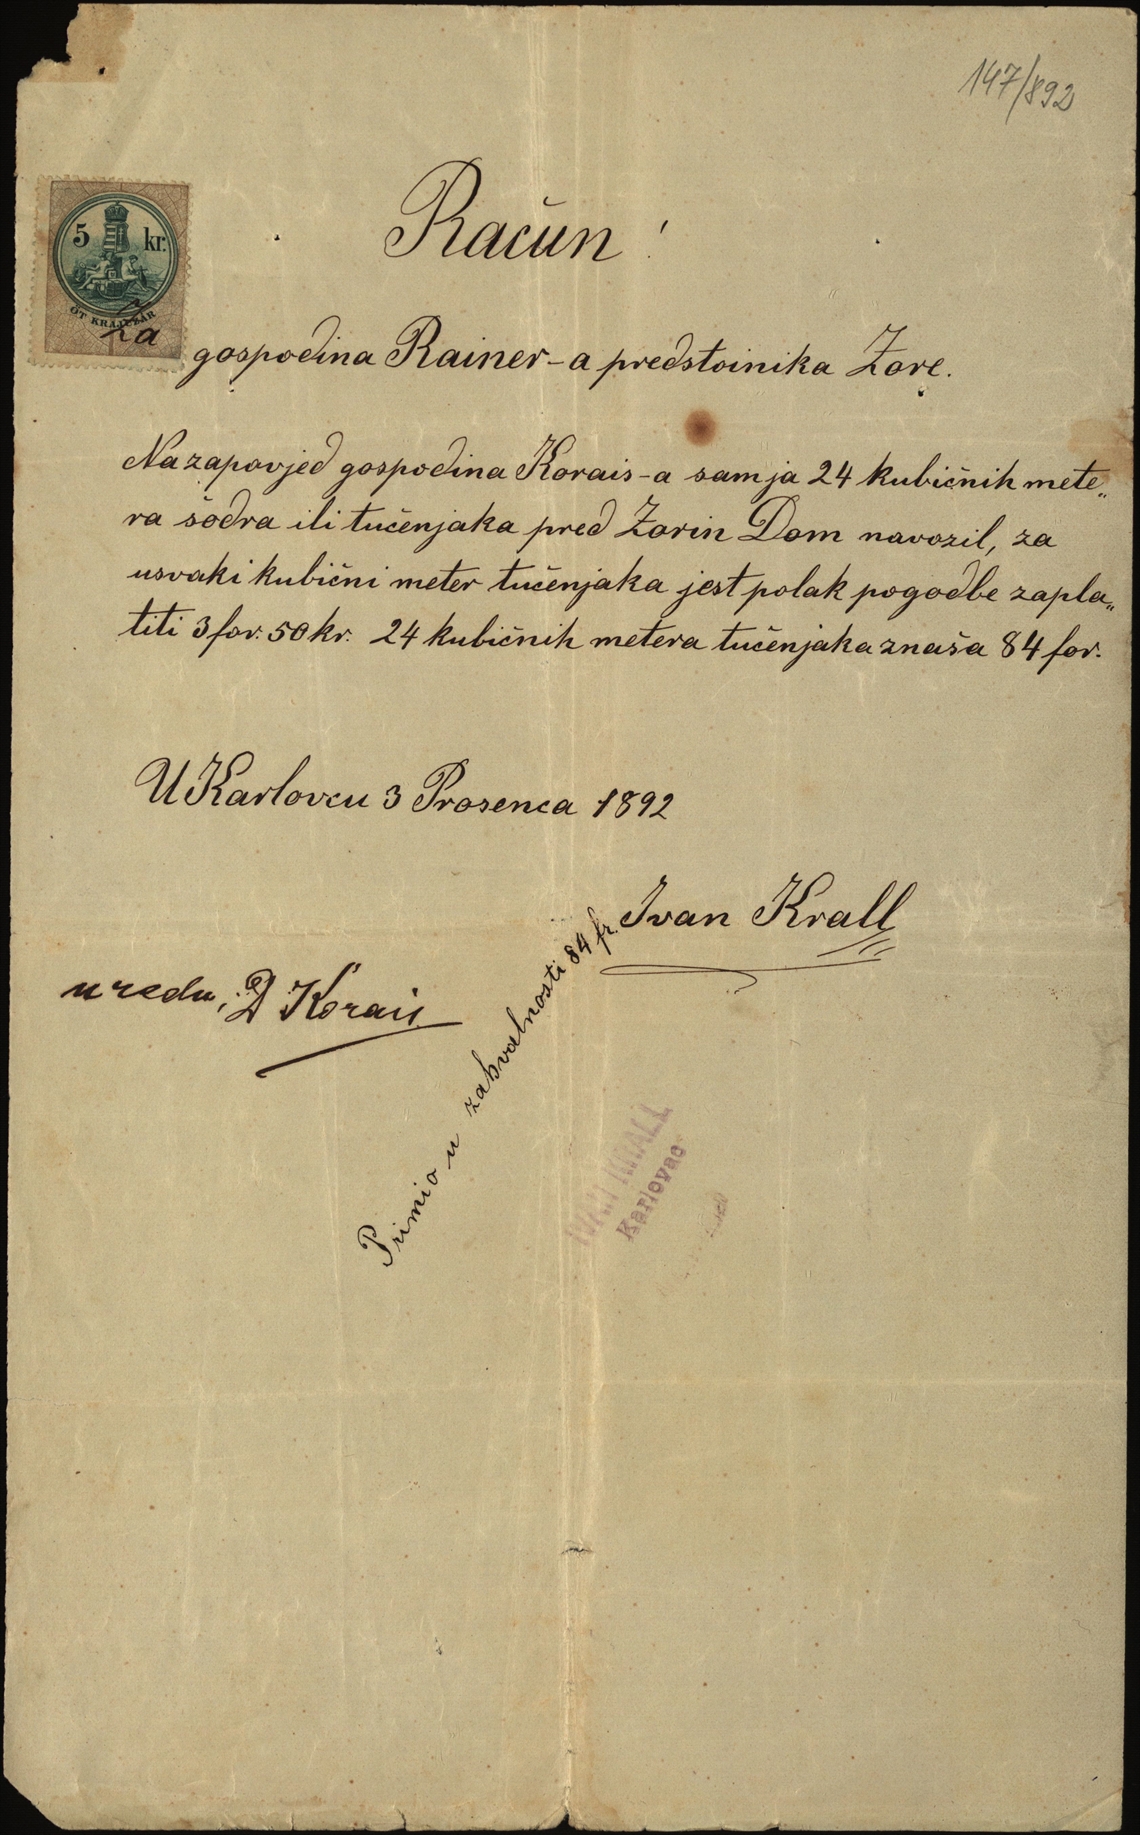 147/892
Račun!
5 kr.
ÖT KRAJCZÁR
za gospodina Rainer-a predstoinika Zore.
Na zapovjed gospodina Korais-a sam ja 24 kubičnih mete„
ra šodra ili tučenjaka pred Zorin Dom navozil, za
usvaki kubični meter tučenjaka jest polak pogodbe zapla„
titi 3 for. 50 kr. 24 kubičnih metera tučenjaka znaša 84 for.
U Karlovcu 3 Prosenca 1892
Ivan Krall
u redu, D Korais
Primio u zahvalnosti 84 fr.
IVAN KRALL
Karlovac